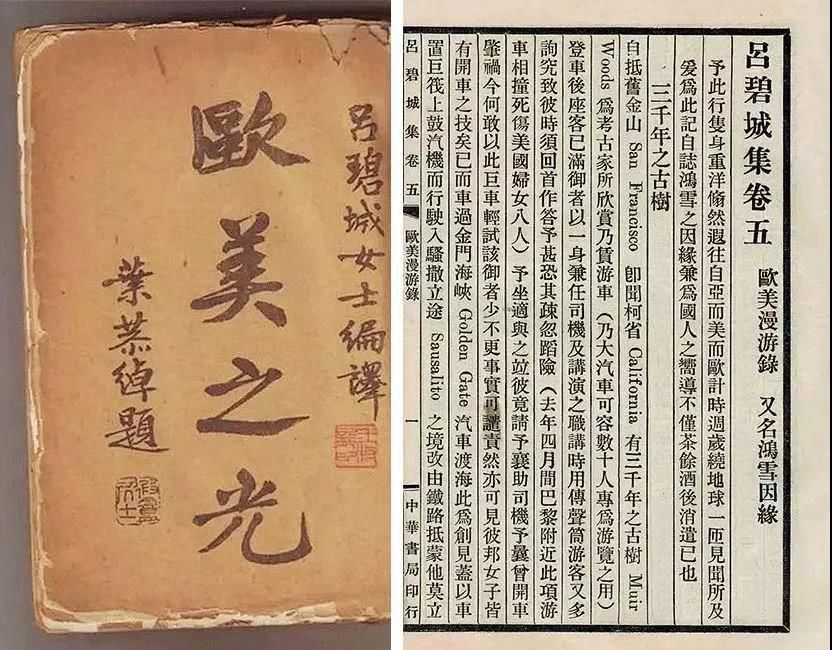 呂碧城女士編譯
歐美之光
葉恭綽題
呂碧城集卷五
歐美漫游錄 又名鴻雪因緣
予此行隻身重洋翛然遐往自亞而美而歐計時週歲繞地球一匝見聞所及
爰爲此記自誌鴻雪之因緣兼爲國人之嚮導不僅茶餘酒後消遣已也
三千年之古樹
自抵舊金山 San Francisco 卽聞柯省 California 有三千年之古樹 Muir
Woods 爲考古家所欣賞乃賃游車（乃大汽車可容數十人專爲游覽之用）
登車後座客已滿御者以一身兼任司機及講演之職講時用傳聲筒游客又多
詢究致彼時須回首作答予甚恐其疎忽蹈險（去年四月間巴黎附近此項游
車相撞死傷美國婦女八人）予坐適與之竝彼竟請予襄助司機予曩曾開車
肇禍今何敢以此巨車輕試該御者少不更事實可譴責然亦可見彼邦女子皆
有開車之技矣已而車過金門海峽 Golden Gate 汽車渡海此爲創見蓋以車
置巨筏上鼓汽機而行駛入騷撒立途 Sausalito 之境改由鐵路抵蒙他莫立
呂碧城集卷五 歐美漫游錄 一 中華書局印行